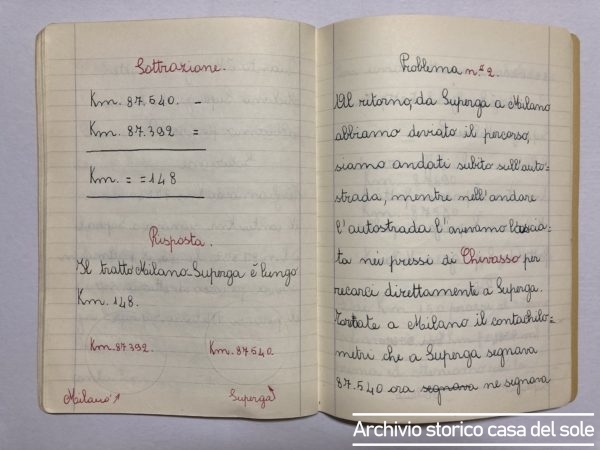 Sottrazione.
Km. 87.540. -
Km. 87.392 =
Km. = = 148
Risposta.
Il tratto Milano-Superga è lungo
Km. 148.
Km. 87392.
Km. 87540.
Milano
Superga
Problema n.º 2.
Al ritorno, da Superga a Milano
abbiamo deviato il percorso,
siamo andati subito sull'auto=
strada, mentre nell'andare
l'autostrada l'avevamo lascia=
ta nei pressi di Chivasso per
recarci direttamente a Superga.
a Milano il contachilo=
metri che a Superga segnava
87.540 ora segnava ne segnava
Archivio storico casa del sole